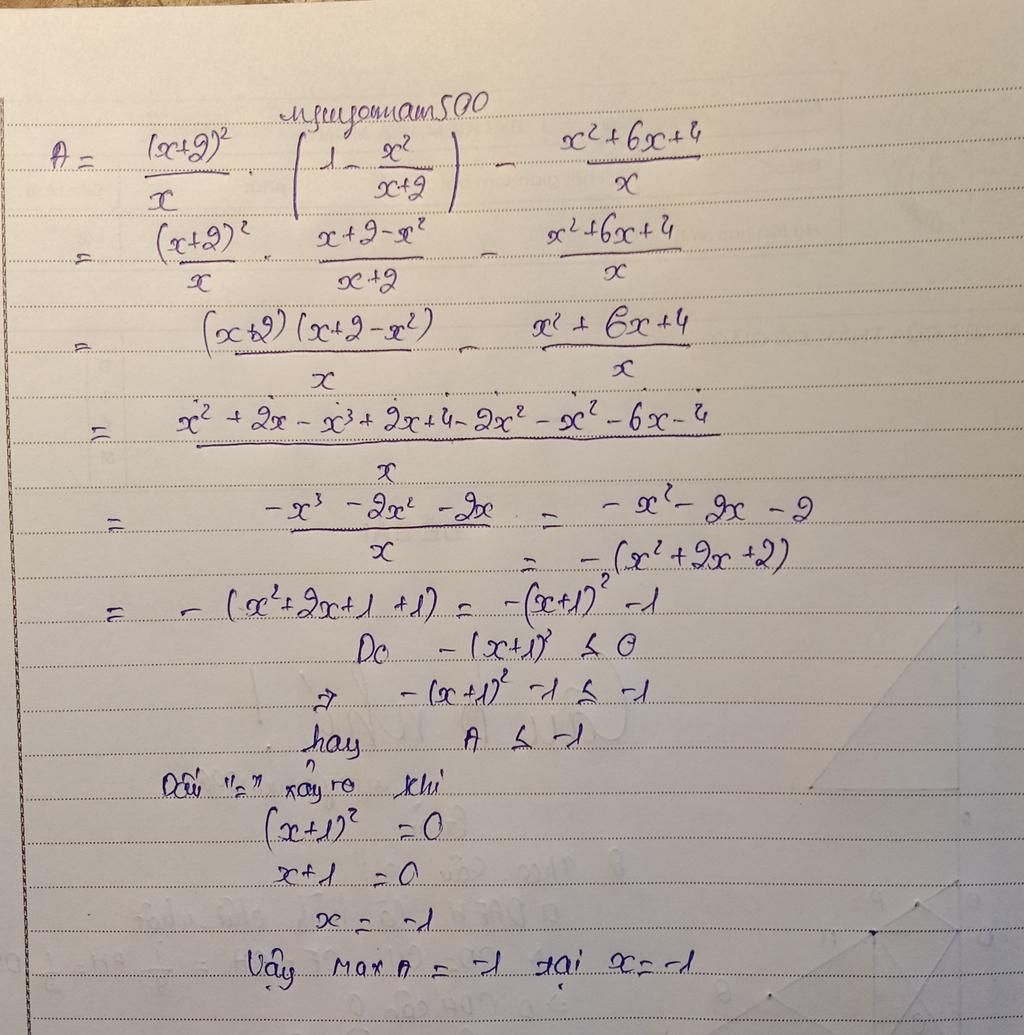 nguyonnam500
A = (x+2)²/x . (1 - x²/(x+2)) - (x²+6x+4)/x
= (x+2)²/x . (x+2-x²)/(x+2) - (x²+6x+4)/x
= (x+2)(x+2-x²)/x - (x²+6x+4)/x
= (x²+2x-x³+2x+4-2x²-x²-6x-4)/x
= (-x³-2x²-2x)/x = -x²-2x-2
= -(x²+2x+2)
= -(x²+2x+1+1) = -(x+1)²-1
Do -(x+1)² ≤ 0
⇒ -(x+1)² -1 ≤ -1
hay A ≤ -1
Dấu "=" xảy ra khi
(x+1)² = 0
x+1 = 0
x = -1
Vậy Max A = -1 tại x = -1